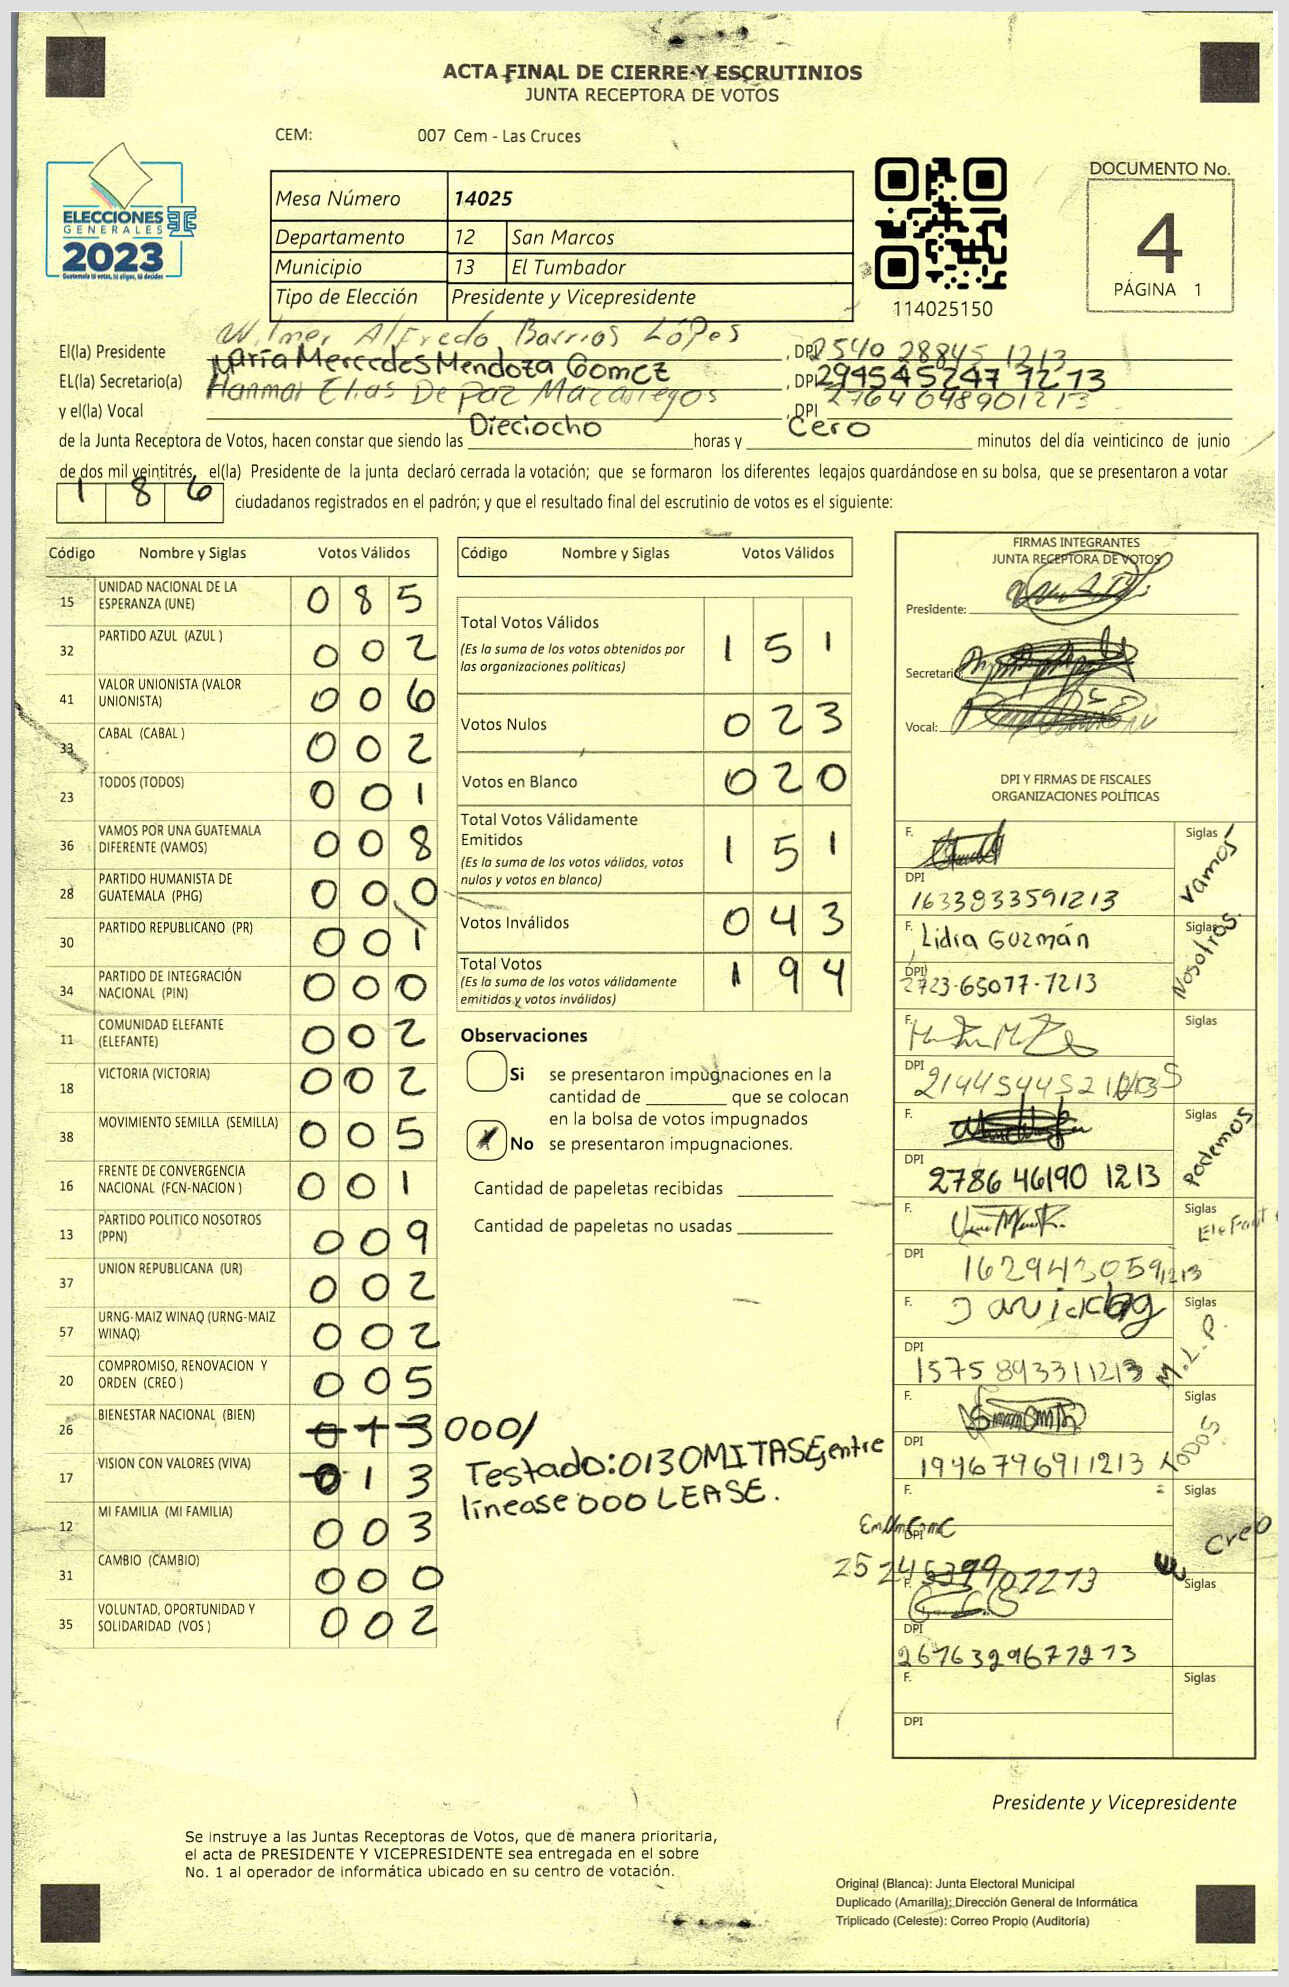 ACTA FINAL DE CIERRE Y ESCRUTINIOS
JUNTA RECEPTORA DE VOTOS
CEM: 007 Cem - Las Cruces
ELECCIONES
GENERALES
2023
Guatemala tú votas, tú eliges, tú decides
Mesa Número 14025
Departamento 12 San Marcos
Municipio 13 El Tumbador
Tipo de Elección Presidente y Vicepresidente
114025150
DOCUMENTO No.
4
PÁGINA 1
El(la) Presidente Wilmer Alfredo Barrios LóPes , DPI 2540 28845 1213
EL(la) Secretario(a) María Mercedes Mendoza Gomez , DPI 294545247 1213
y el(la) Vocal Hanmar Elias De Paz Mazariegos , DPI 2764 048901213
de la Junta Receptora de Votos, hacen constar que siendo las Dieciocho horas y Cero minutos del día veinticinco de junio
de dos mil veintitrés, el(la) Presidente de la junta declaró cerrada la votación; que se formaron los diferentes legajos guardándose en su bolsa, que se presentaron a votar
1 8 6 ciudadanos registrados en el padrón; y que el resultado final del escrutinio de votos es el siguiente:
Código Nombre y Siglas Votos Válidos
15 UNIDAD NACIONAL DE LA ESPERANZA (UNE) 0 8 5
32 PARTIDO AZUL (AZUL ) 0 0 2
41 VALOR UNIONISTA (VALOR UNIONISTA) 0 0 6
33 CABAL (CABAL ) 0 0 2
23 TODOS (TODOS) 0 0 1
36 VAMOS POR UNA GUATEMALA DIFERENTE (VAMOS) 0 0 8
28 PARTIDO HUMANISTA DE GUATEMALA (PHG) 0 0 0
30 PARTIDO REPUBLICANO (PR) 0 0 1
34 PARTIDO DE INTEGRACIÓN NACIONAL (PIN) 0 0 0
11 COMUNIDAD ELEFANTE (ELEFANTE) 0 0 2
18 VICTORIA (VICTORIA) 0 0 2
38 MOVIMIENTO SEMILLA (SEMILLA) 0 0 5
16 FRENTE DE CONVERGENCIA NACIONAL (FCN-NACION ) 0 0 1
13 PARTIDO POLITICO NOSOTROS (PPN) 0 0 9
37 UNION REPUBLICANA (UR) 0 0 2
57 URNG-MAIZ WINAQ (URNG-MAIZ WINAQ) 0 0 2
20 COMPROMISO, RENOVACION Y ORDEN (CREO ) 0 0 5
26 BIENESTAR NACIONAL (BIEN) 0 1 3 000/
17 VISION CON VALORES (VIVA) 0 1 3
12 MI FAMILIA (MI FAMILIA) 0 0 3
31 CAMBIO (CAMBIO) 0 0 0
35 VOLUNTAD, OPORTUNIDAD Y SOLIDARIDAD (VOS ) 0 0 2
Testado:013OMITASE,entre
línease 000 LEASE.
Código Nombre y Siglas Votos Válidos
Total Votos Válidos 1 5 1
(Es la suma de los votos obtenidos por
las organizaciones políticas)
Votos Nulos 0 2 3
Votos en Blanco 0 2 0
Total Votos Válidamente
Emitidos 1 5 1
(Es la suma de los votos válidos, votos
nulos y votos en blanco)
Votos Inválidos 0 4 3
Total Votos 1 9 4
(Es la suma de los votos válidamente
emitidos y votos inválidos)
Observaciones
Si se presentaron impugnaciones en la
cantidad de ________ que se colocan
en la bolsa de votos impugnados
No se presentaron impugnaciones.
Cantidad de papeletas recibidas
Cantidad de papeletas no usadas
FIRMAS INTEGRANTES
JUNTA RECEPTORA DE VOTOS
Presidente:
Secretario:
Vocal:
DPI Y FIRMAS DE FISCALES
ORGANIZACIONES POLÍTICAS
F. Siglas Vamos
DPI 1633933591213
F. Lidia Guzmán Siglas Nosotros.
DPI 2723-65077-1213
F. Siglas
DPI
F. Siglas Podemos
DPI 2786 46190 1213
F. Siglas Elefant
DPI 1629430591213
F. Siglas M.L.P.
DPI 1575 893311213
F. Siglas TODOS
DPI 1946796911213
F. Siglas Creo
DPI
F. Siglas
DPI 2676329671213
F. Siglas
DPI
Presidente y Vicepresidente
Se instruye a las Juntas Receptoras de Votos, que de manera prioritaria,
el acta de PRESIDENTE Y VICEPRESIDENTE sea entregada en el sobre
No. 1 al operador de informática ubicado en su centro de votación.
Original (Blanca): Junta Electoral Municipal
Duplicado (Amarilla): Dirección General de Informática
Triplicado (Celeste): Correo Propio (Auditoría)